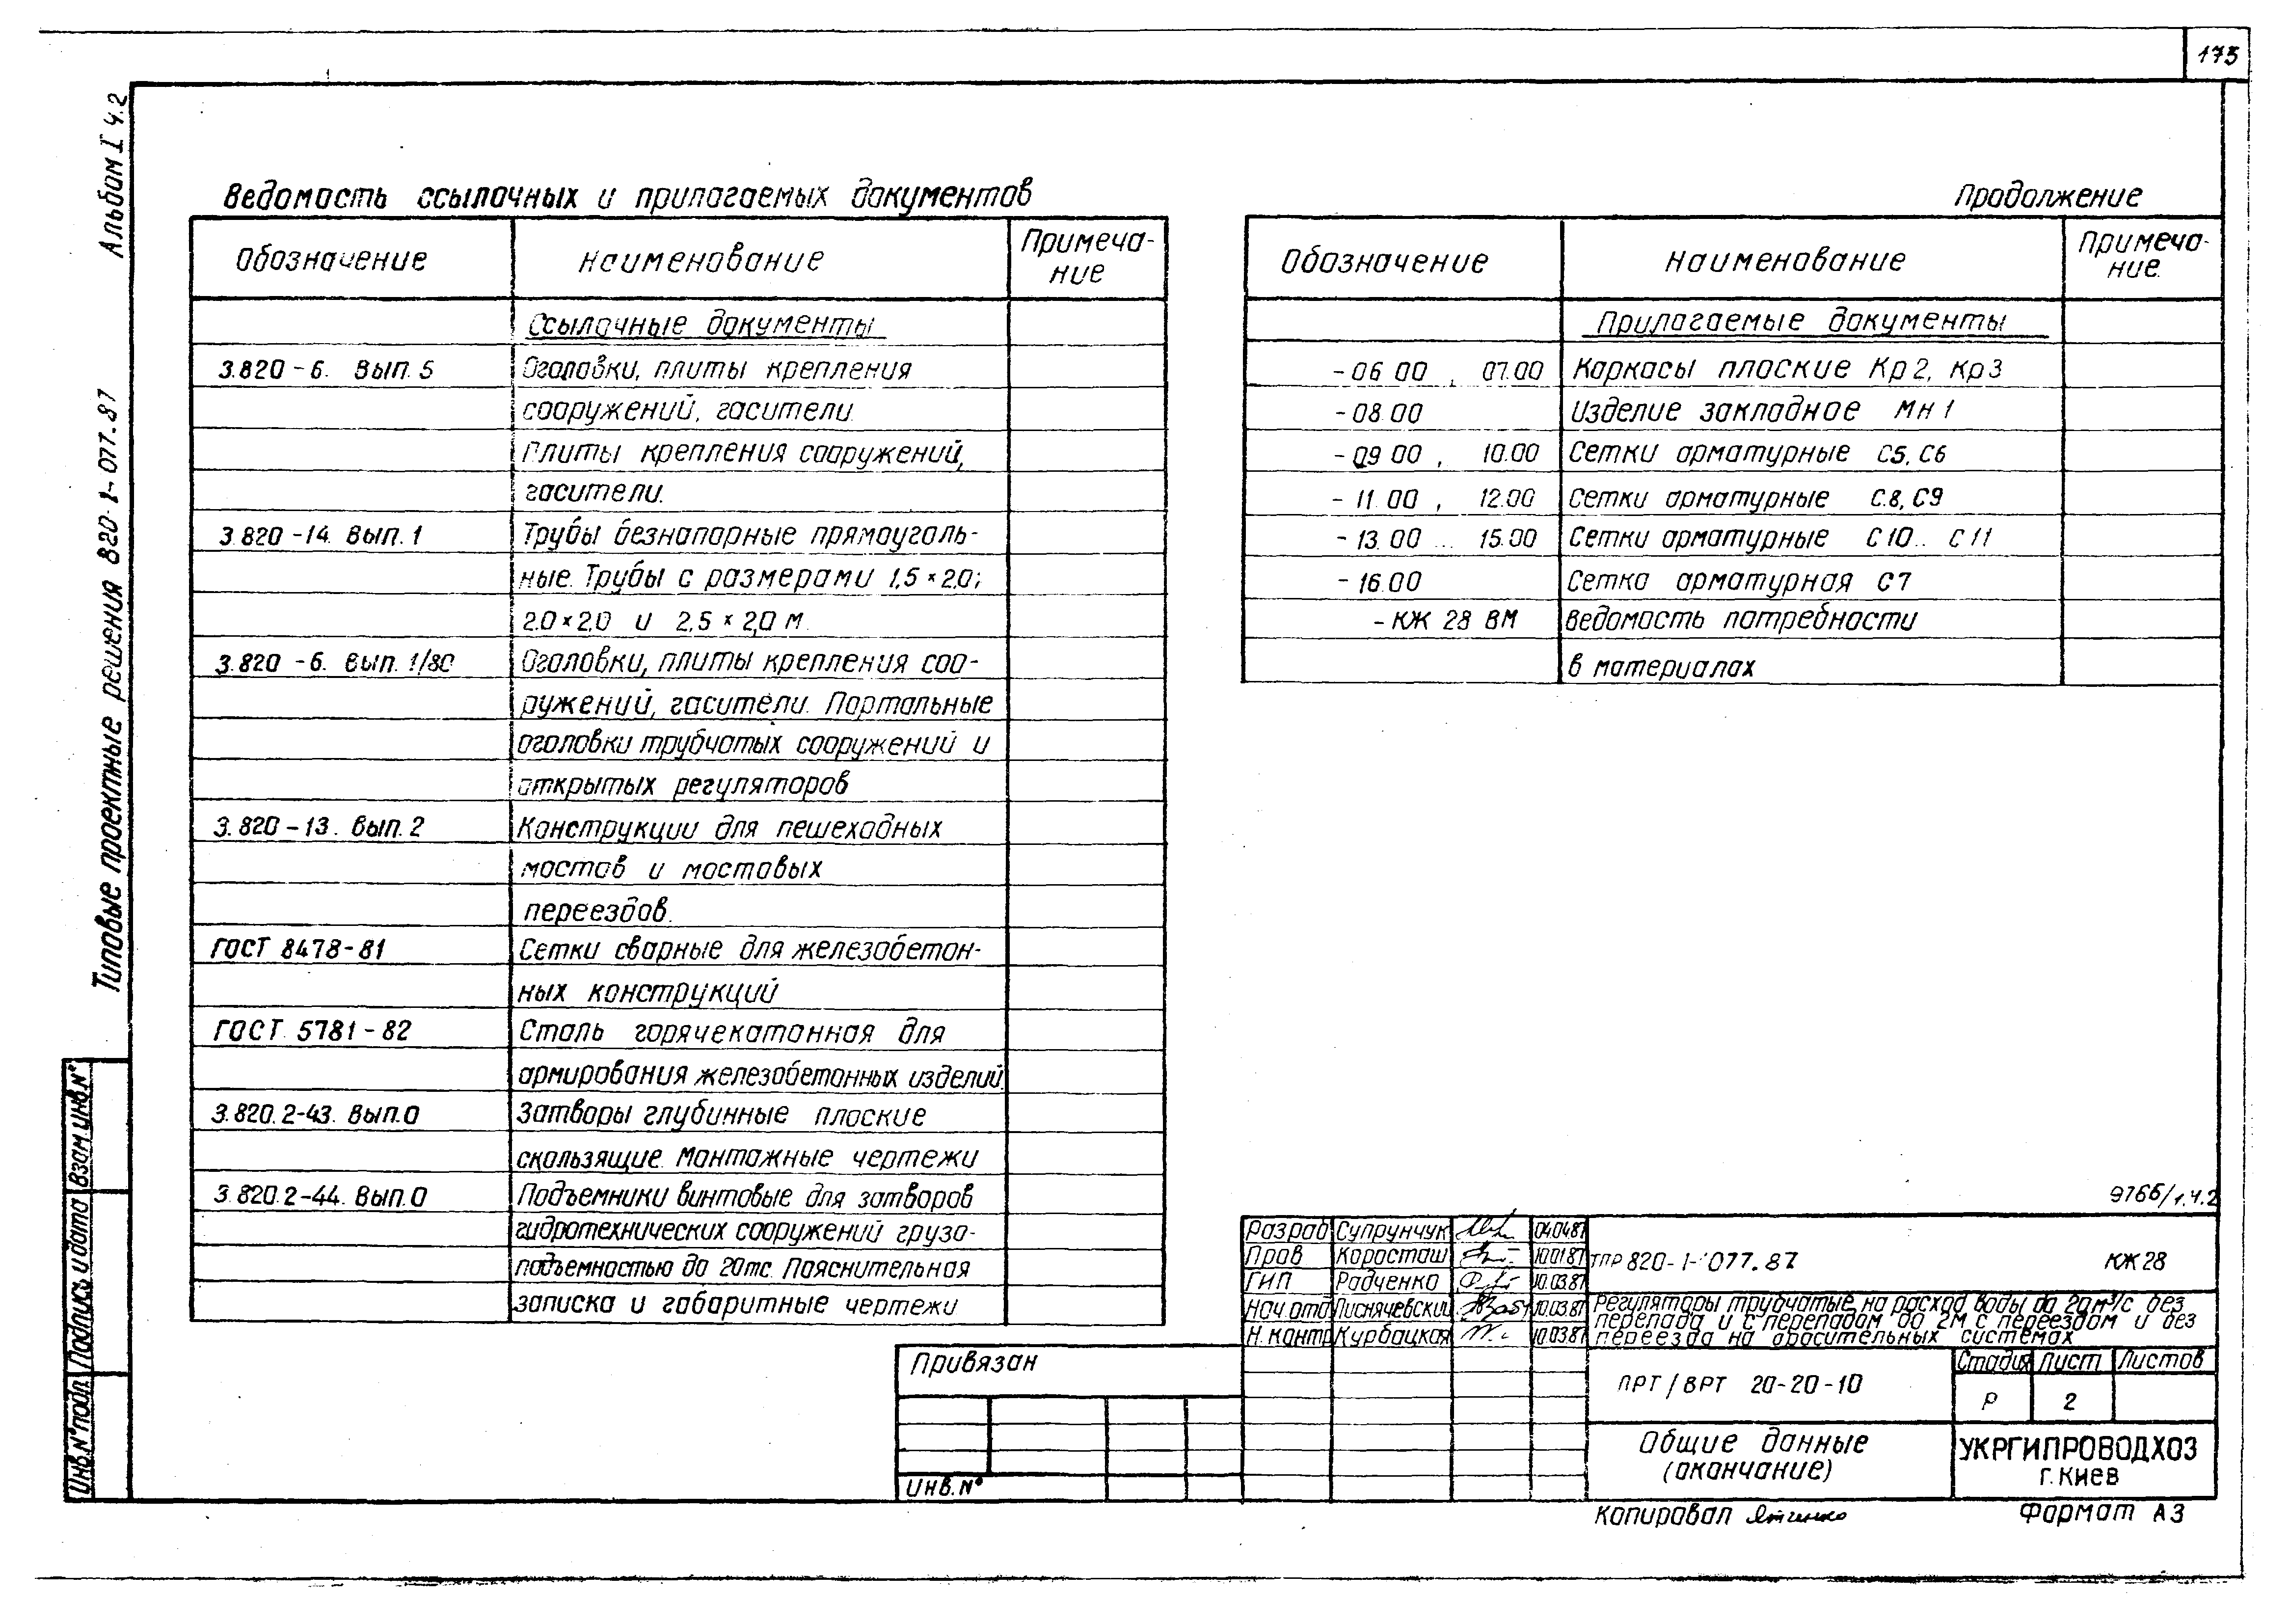 173
Альбом I ч.2
Типовые проектные решения 820-1-077.87
Ведомость ссылочных и прилагаемых документов
Обозначение Наименование Примеча-
ние
Ссылочные документы
3.820-6. Вып. 5 Оголовки, плиты крепления
сооружений, гасители.
Плиты крепления сооружений,
гасители.
3.820-14. Вып. 1 Трубы безнапорные прямоуголь-
ные. Трубы с размерами 1,5×2,0;
2,0×2,0 и 2,5×2,0 м.
3.820-6. Вып. 1/80 Оголовки, плиты крепления соо-
ружений, гасители. Портальные
оголовки трубчатых сооружений и
открытых регуляторов
3.820-13. Вып. 2 Конструкции для пешеходных
мостов и мостовых
переездов.
ГОСТ 8478-81 Сетки сварные для железобетон-
ных конструкций
ГОСТ 5781-82 Сталь горячекатанная для
армирования железобетонных изделий
3.820.2-43. Вып.0 Затворы глубинные плоские
скользящие. Монтажные чертежи
3.820.2-44. Вып.0 Подъемники винтовые для затворов
гидротехнических сооружений грузо-
подъемностью до 20тс. Пояснительная
записка и габаритные чертежи
Продолжение
Обозначение Наименование Примеча-
ние
Прилагаемые документы
-06 00, 07.00 Каркасы плоские Кр2, Кр3
-08 00 Изделие закладное Мн 1
-09 00, 10.00 Сетки арматурные С5, С6
-11 00, 12.00 Сетки арматурные С.8, С9
-13.00 ... 15.00 Сетки арматурные С10... С11
-16.00 Сетка арматурная С7
-КЖ 28 ВМ Ведомость потребности
в материалах
9766/1.ч.2
Разраб Супрунчук 04.04.87
Пров Коросташ 10.01.87
ГИП Радченко 10.03.87
Нач.отд Лиснячевский 10.03.87
Н.контр Курбацкая 10.03.87
ТПР 820-1-077.87 КЖ 28
Регуляторы трубчатые на расход воды до 20м³/с без
перепада и с перепадом до 2м с переездом и без
переезда на оросительных системах
ПРТ/ВРТ 20-20-10
Стадия Лист Листов
Р 2
Общие данные
(окончание)
УКРГИПРОВОДХОЗ
г. Киев
Привязан
Инв. №
Взам инв.№
Подпись и дата
Инв.№подл
Копировал
Формат А3